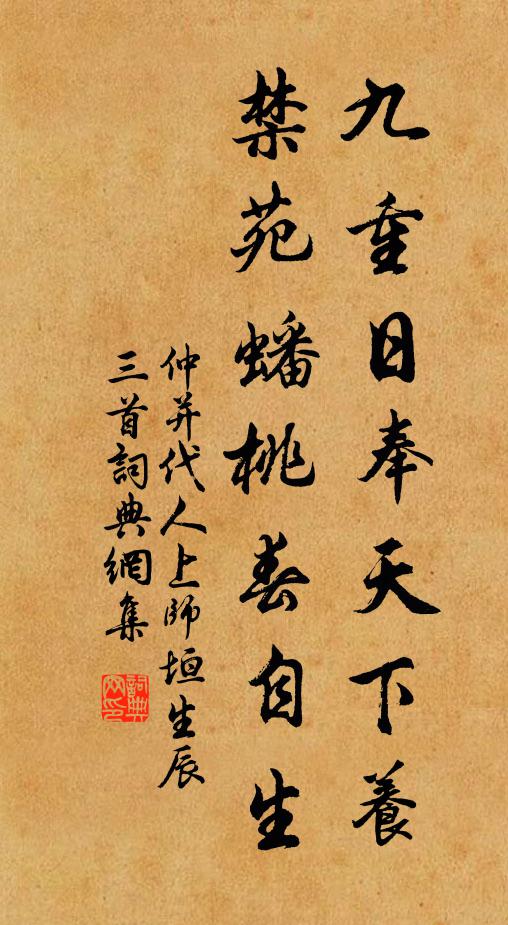 九重日奉天下養
禁苑蟠桃春自生
仲并代人上師垣生辰
三首詞典網集
詞典
网印